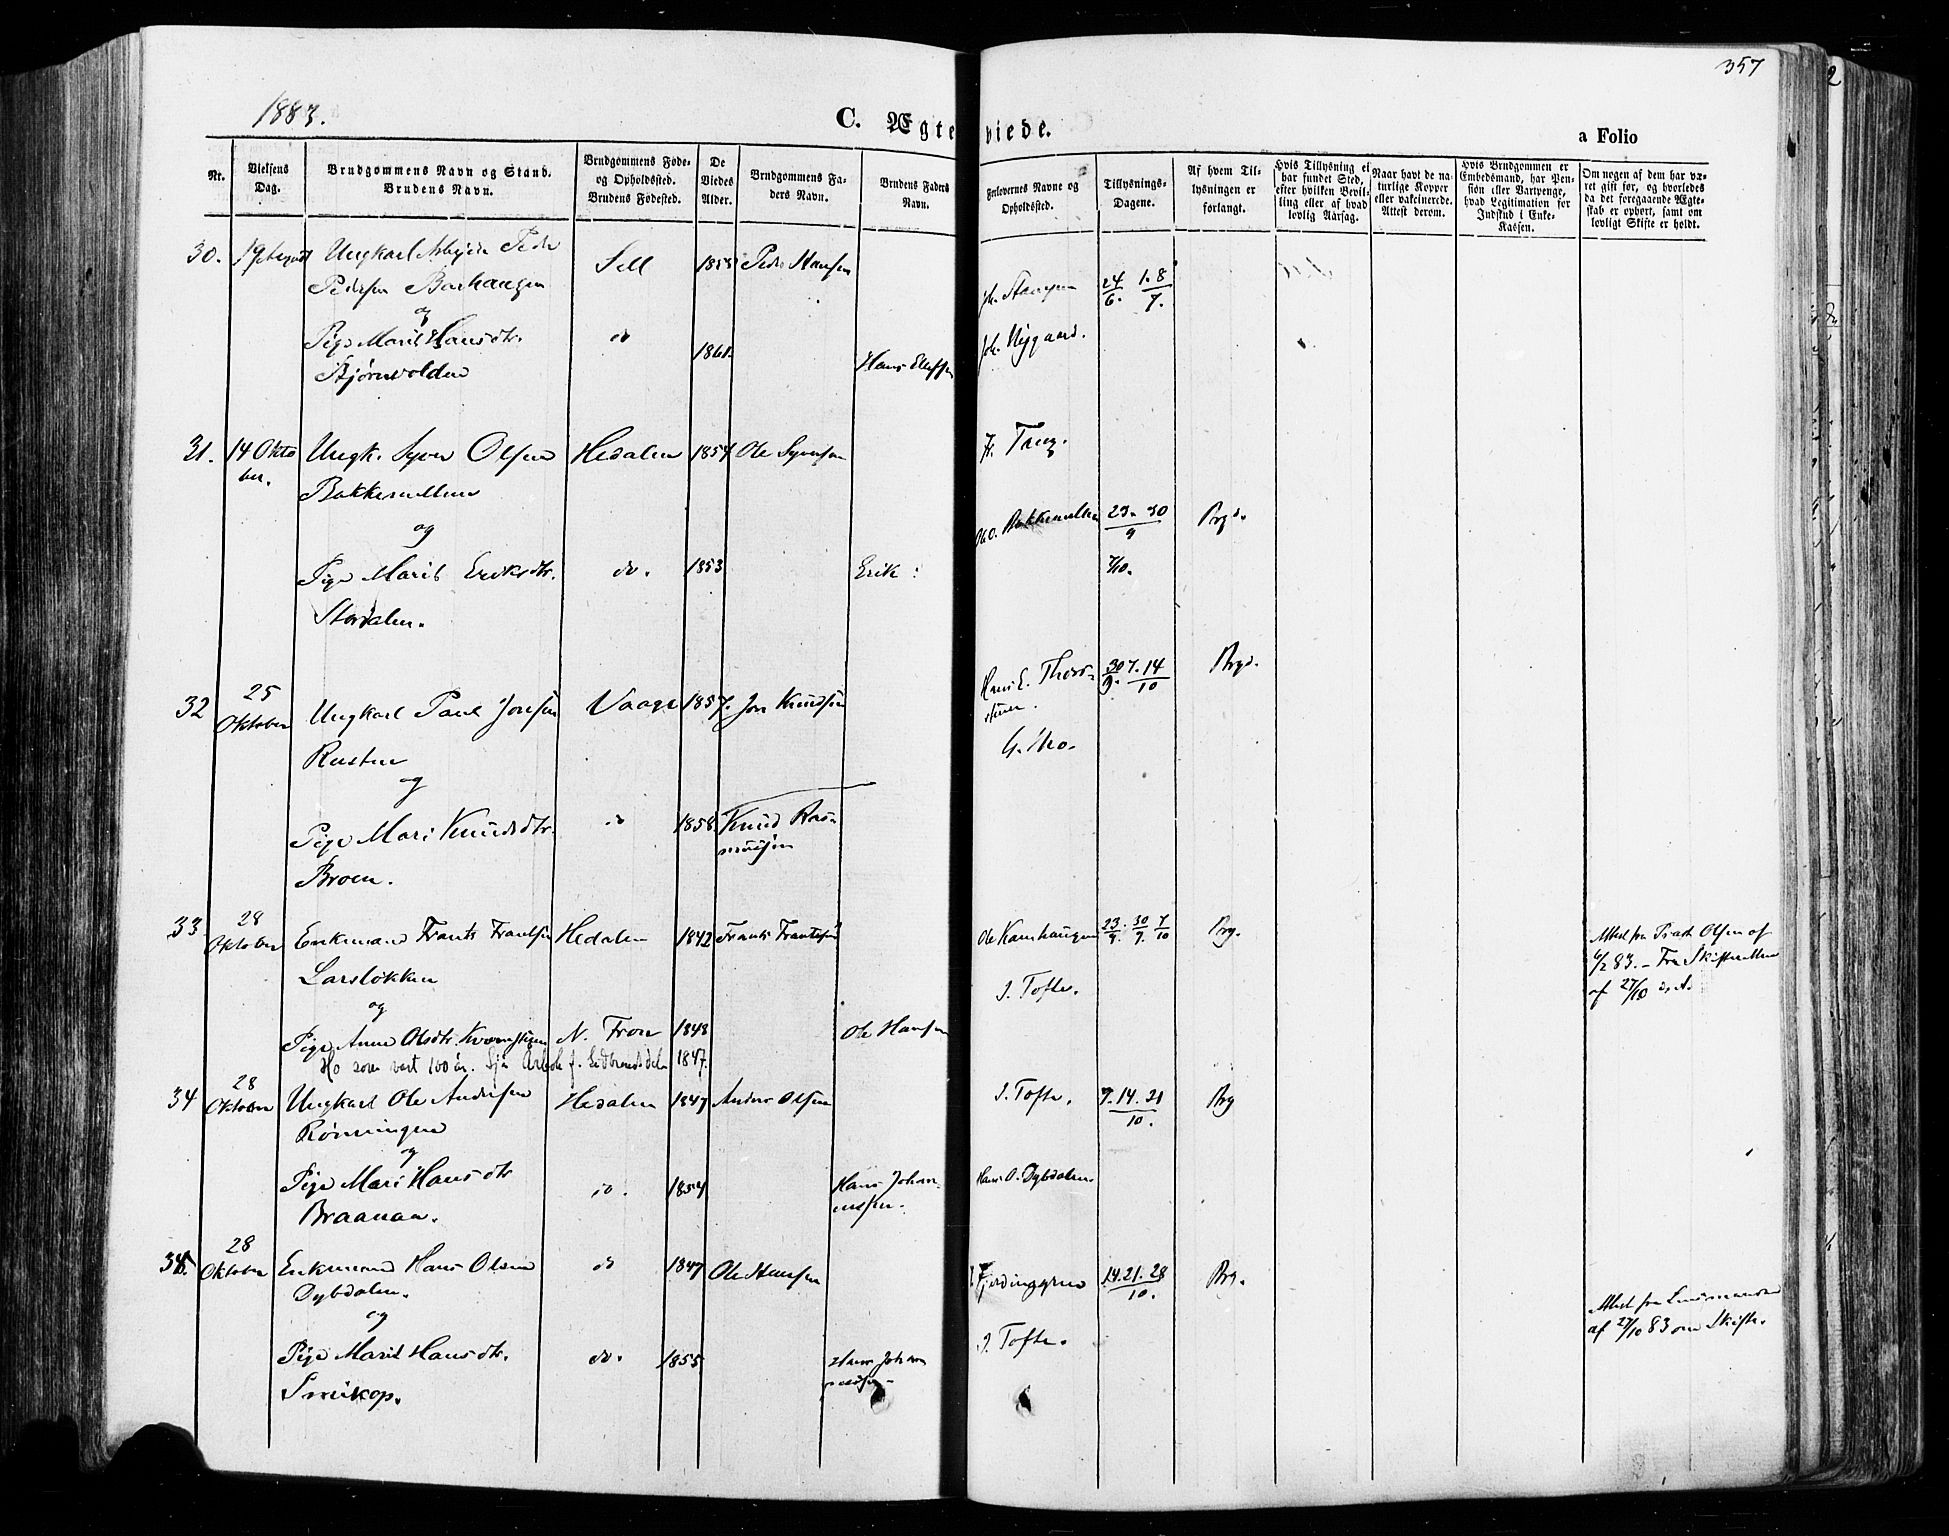 357
2
1883.
C. Ægteviede.
a Folio
Nr.
Vielsens Dag.
Brudgommens Navn og Stand.
Brudens Navn.
Brudgommens Føde- og Opholdssted.
Brudens Fødested.
De Viedes Alder.
Brudgommens Faders Navn.
Brudens Faders Navn.
Forlovernes Navne og Opholdssted.
Tillysnings-Dagene.
Af hvem Tillysningen er forlangt.
Hvis Tillysning ei har fundet Sted, efter hvilken Bevilling eller af hvad lovlig Aarsag.
Naar havt de naturlige Kopper eller vakcinerede. Attest derom.
Hvis Brudgommen er Embedsmand, har Pension eller Vartpenge, hvad Legitimation for Indskud i Enke-Kassen.
Om nogen af dem har været gift før, og hvorledes da det foregaaende Ægteskab er ophørt, samt om lovligt Skifte er holdt.
30. 19 August Ungkarl Peder Sell 1855 Peder Hansen
Pedersen Barhaugen 24/6. 1.8/7.
og
Pige Marit Hansdtr. do 1861. Joh. Nygaard.
Bjørnvolden Hans
31. 14 Okto Ungk. Syver Olsen Hedalen 1854 Ole Syversen
ber. Bakkemellem
og O. Bakkemellem 23. 30/9 Brgd.
Pige Marit Eriksdtr. do. 1853 Erik : 7/10.
Stordalen.
32 25 Oktober Ungkarl Paul Jonsen Vaage 1857. Jon Knudsen Hans E. 30/9. 7. 14/10 Brgd.
Rusten
og
Pige Mari Knudsdtr. do 1858 Knud Ras-
Broen. mussen
33 28 Oktober Enkemand Frants Frantsen Hedalen 1842 Frants Frantsen Ole Kamhaugen 23/9. 30/9. 7/10 Brg. Attest fra Olsen af
Larsløkken 6/2 83. – Fra Skifteretten
og J. Tofte. af 27/10 d. A.
Pige Anne Olsdtr. N. Fron 1848 Ole Hansen
Ho som vart 100 år. Sjå Årbok f. Gudbrandsdalen 1847.
34 28 Oktober Ungkarl Ole Andersen Hedalen 1847 Anders Olsen J. Tofte. 7. 14. 21/10. Brg
Rønningen
og
Pige Mari Hansdtr do. 1854 Hans Johan- Hans O. Dybdalen.
Braanaa. nessen.
35. 28 Oktober Enkemand Hans Olsen do 1847 Ole Hansen 14. 21. 28/10. Brg.
Dybdalen. Attest fra Lensmanden
og af 27/10 83 om Skifte.
Pige Marit Hansdtr. do. 1855 Hans Johan J. Tofte.
nessen